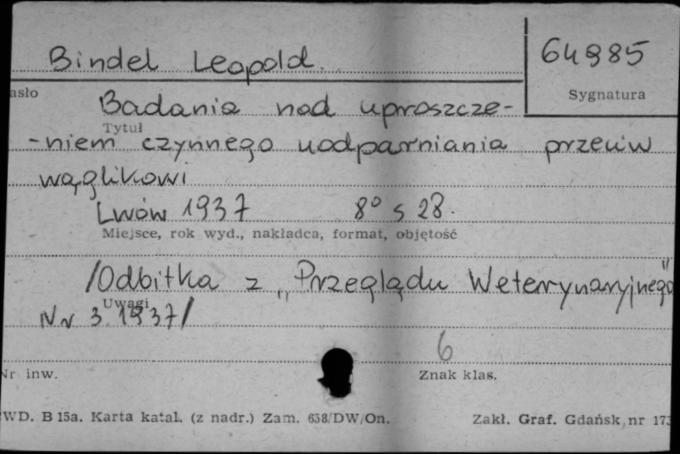 Bindel Leopold.
64985
asło
Sygnatura
Badania nad uproszcze-
Tytuł
-niem czynnego uodparniania przeciw
wąglikowi
Lwów 1937 8° s 28.
Miejsce, rok wyd., nakładca, format, objętość
/Odbitka z „Przeglądu Weterynaryjnego"
Uwagi
Nr 3. 1937/
6
Nr inw.
Znak klas.
WD. B 15a. Karta katal. (z nadr.) Zam. 658/DW/On.
Zakł. Graf. Gdańsk, nr 173